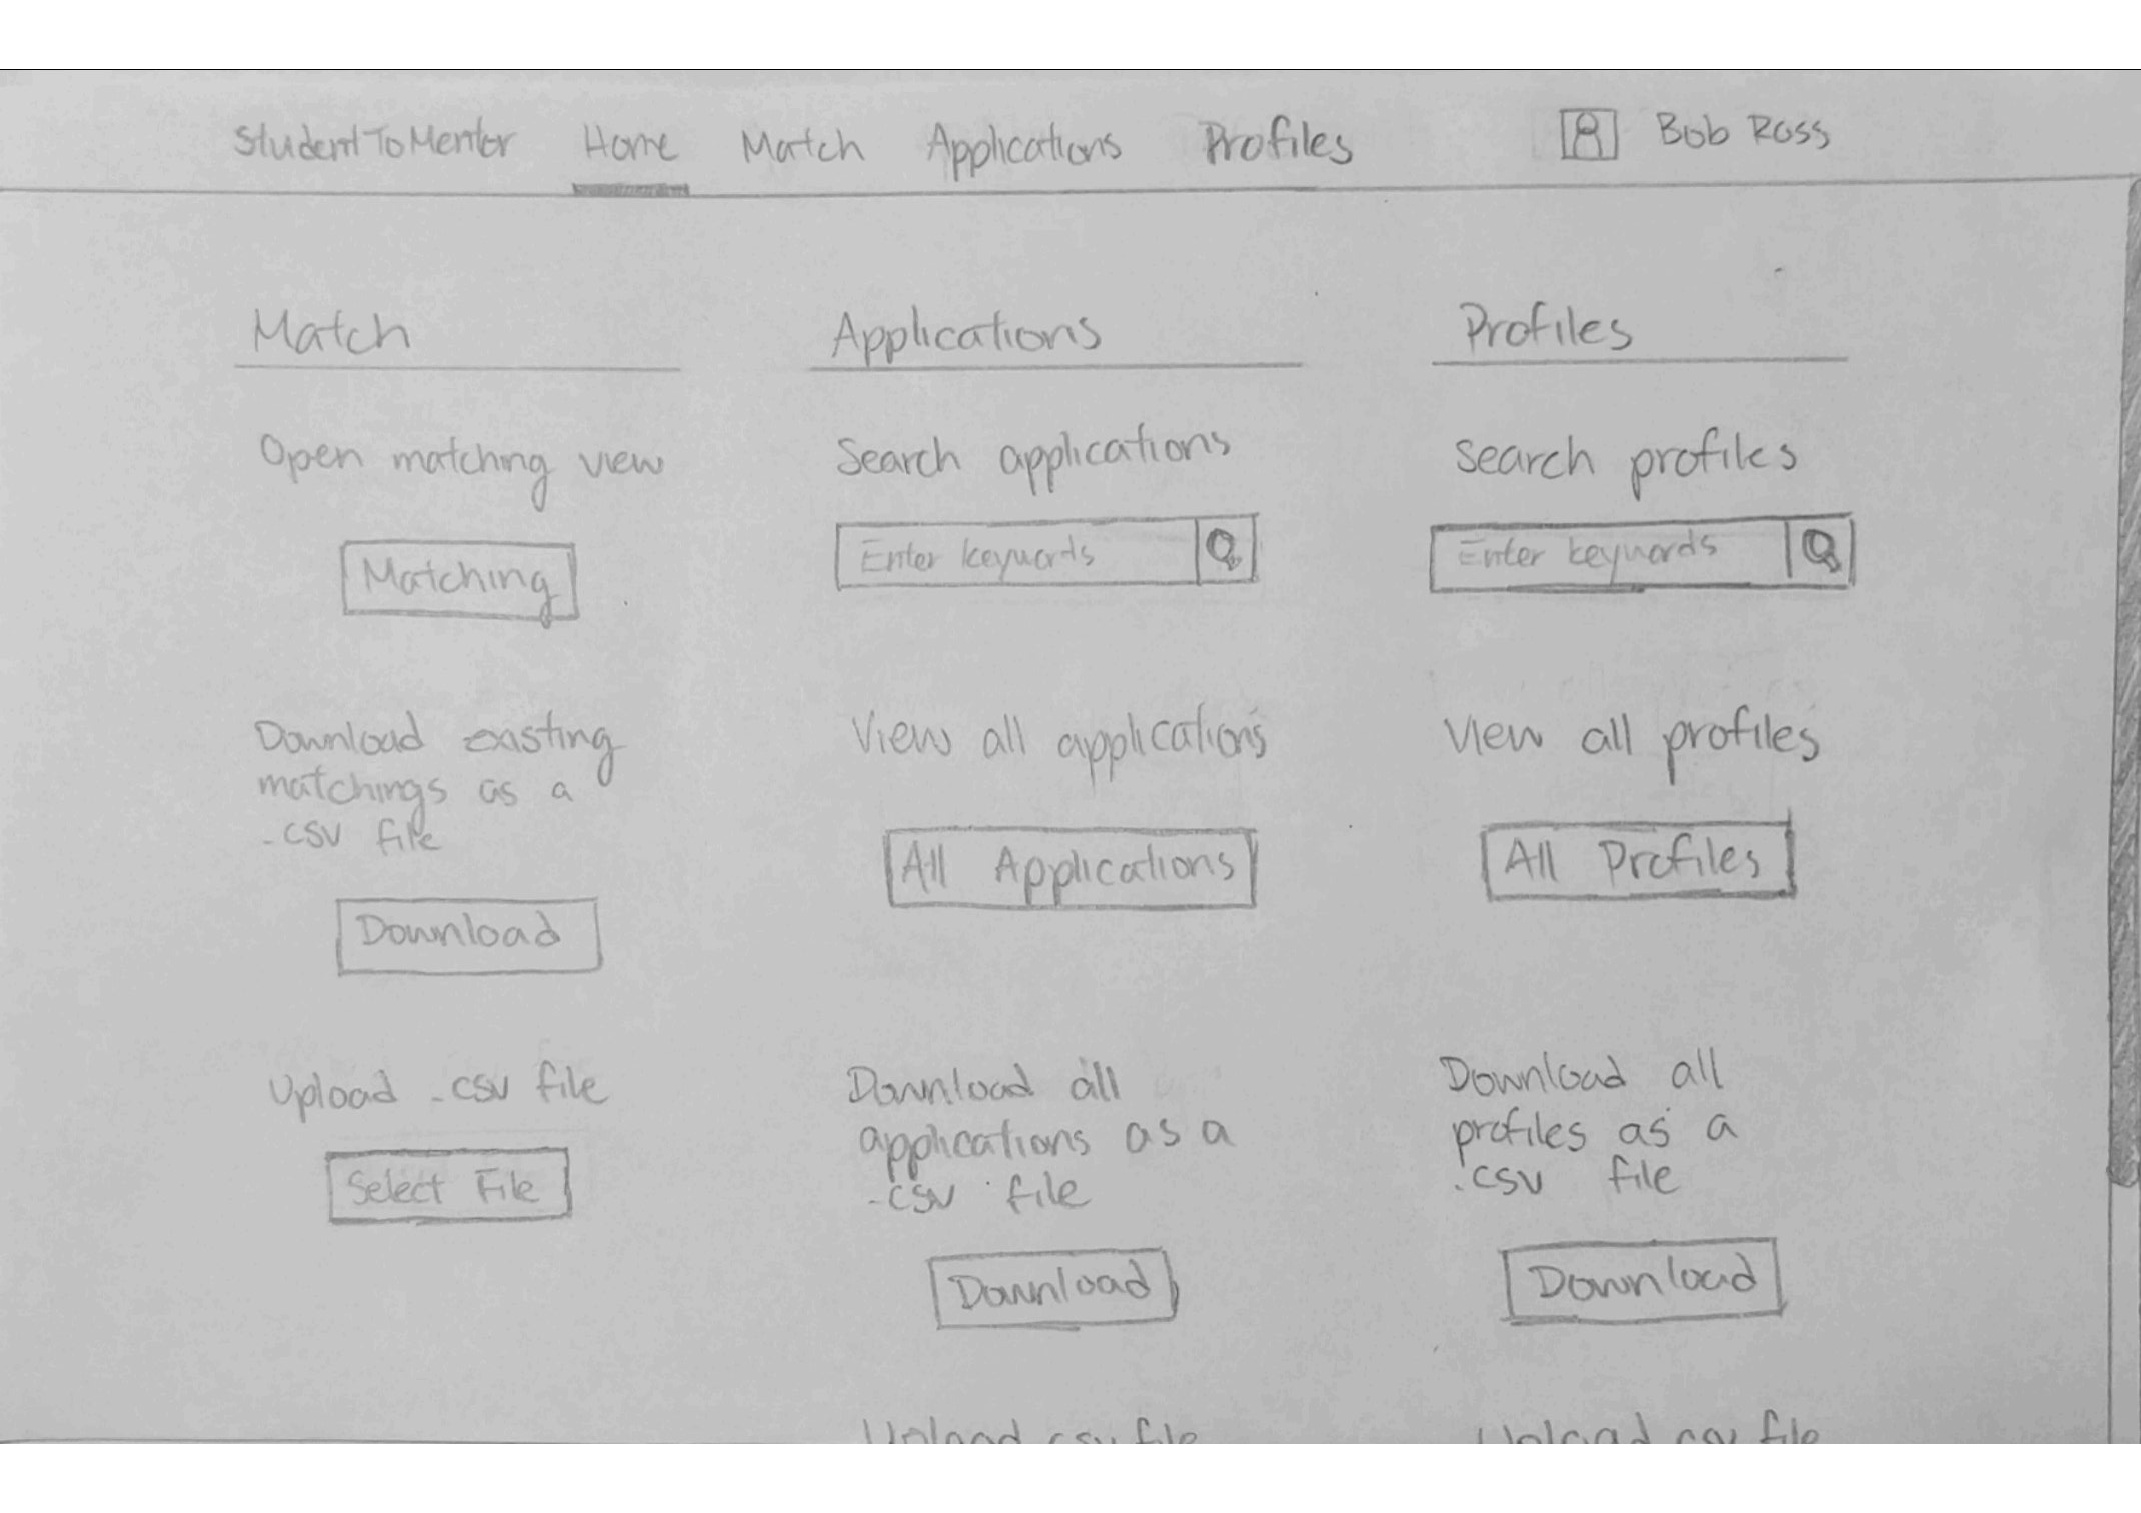 StudentToMentor Home Match Applications Profiles Bob Ross
Match
Open matching view
Matching
Download existing
matchings as a
.csv file
Download
Upload .csv file
Select File
Applications
Search applications
Enter keywords
View all applications
All Applications
Download all
applications as a
.csv file
Download
Upload csv file
Profiles
Search profiles
Enter keywords
View all profiles
All Profiles
Download all
profiles as a
.csv file
Download
Upload csv file